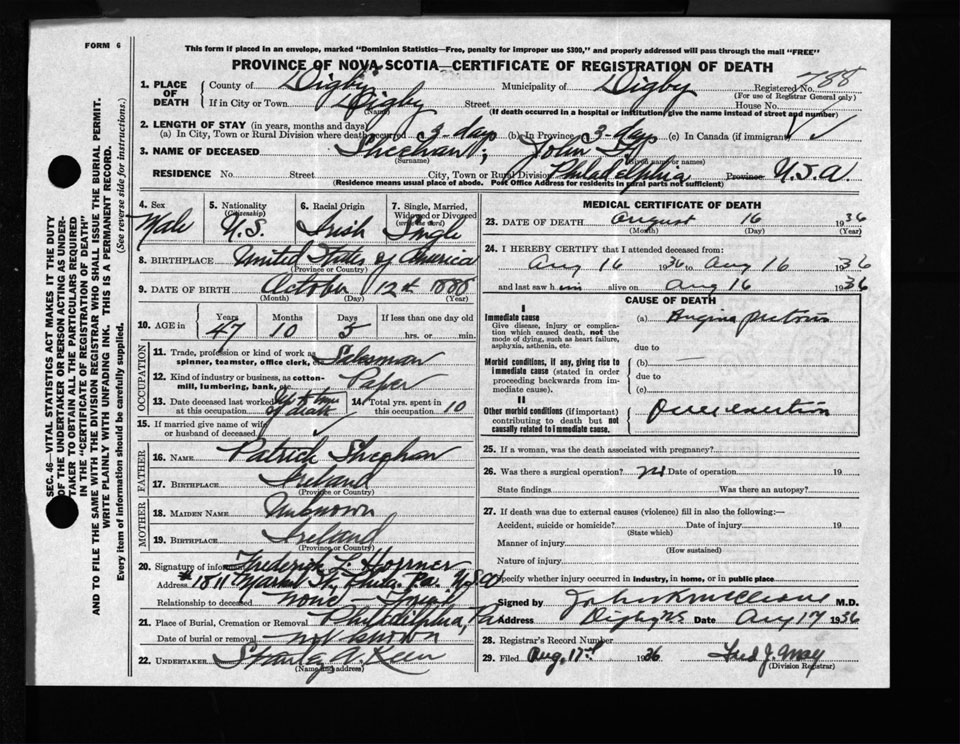 FORM 6
This form if placed in an envelope, marked "Dominion Statistics—Free, penalty for improper use $300," and properly addressed will pass through the mail "FREE"
PROVINCE OF NOVA SCOTIA—CERTIFICATE OF REGISTRATION OF DEATH
788
1. PLACE OF DEATH County of Digby Municipality of Digby Registered No.
(For use of Registrar General only)
If in City or Town Digby Street House No.
(Name) (If death occurred in a hospital or institution, give the name instead of street and number)
2. LENGTH OF STAY (in years, months and days)
(a) In City, Town or Rural Division where death occurred 3 days (b) In Province 3 days (c) In Canada (if immigrant) ✓
3. NAME OF DECEASED Sheehan, John
(Surname) (Given name or names)
RESIDENCE No. Street City, Town or Rural Division Philadelphia Province U.S.A.
(Residence means usual place of abode. Post Office Address for residents in rural parts not sufficient)
SEC. 46—VITAL STATISTICS ACT MAKES IT THE DUTY
OF THE UNDERTAKER OR PERSON ACTING AS UNDER-
TAKER TO OBTAIN ALL THE PARTICULARS REQUIRED
IN THE "CERTIFICATE OF REGISTRATION OF DEATH"
AND TO FILE THE SAME WITH THE DIVISION REGISTRAR WHO SHALL ISSUE THE BURIAL PERMIT.
WRITE PLAINLY WITH UNFADING INK. THIS IS A PERMANENT RECORD.
Every item of information should be carefully supplied. (See reverse side for instructions.)
4. Sex Male
5. Nationality (Citizenship) U.S.
6. Racial Origin Irish
7. Single, Married, Widowed or Divorced (write the word) Single
8. BIRTHPLACE United States of America
(Province or Country)
9. DATE OF BIRTH October 12th 1888
(Month) (Day) (Year)
10. AGE in Years 47 Months 10 Days 5 If less than one day old hrs. or min.
OCCUPATION
11. Trade, profession or kind of work as spinner, teamster, office clerk, etc. Salesman
12. Kind of industry or business, as cotton-mill, lumbering, bank, etc. Paper
13. Date deceased last worked at this occupation Up to time of death
14. Total yrs. spent in this occupation 10
15. If married give name of wife or husband of deceased ✓
FATHER
16. NAME Patrick Sheehan
17. BIRTHPLACE Ireland
(Province or Country)
MOTHER
18. MAIDEN NAME Unknown
19. BIRTHPLACE Ireland
(Province or Country)
20. Signature of informant Frederick L. Horrner
Address #1811 Market St., Phila. Pa. U.S.A.
Relationship to deceased none—Friend
21. Place of Burial, Cremation or Removal Philadelphia, Pa
Date of burial or removal not known
22. UNDERTAKER Stanley A. Keen
(Name and address)
MEDICAL CERTIFICATE OF DEATH
23. DATE OF DEATH August 16 1936
(Month) (Day) (Year)
24. I HEREBY CERTIFY that I attended deceased from:
Aug 16 1936 to Aug 16 1936
and last saw him alive on Aug 16 1936
CAUSE OF DEATH
I
Immediate cause (a) Angina pectoris
Give disease, injury or complication which caused death, not the mode of dying, such as heart failure, asphyxia, asthenia, etc.
due to
Morbid conditions, if any, giving rise to immediate cause (stated in order proceeding backwards from immediate cause).
(b) —
due to
(c)
II
Other morbid conditions (if important) contributing to death but not causally related to immediate cause. Over exertion
25. If a woman, was the death associated with pregnancy?
26. Was there a surgical operation? No Date of operation 19
State findings Was there an autopsy?
27. If death was due to external causes (violence) fill in also the following:—
Accident, suicide or homicide? Date of injury 19
(State which)
Manner of injury
(How sustained)
Nature of injury
Specify whether injury occurred in industry, in home, or in public place
Signed by M.D.
Address Digby N.S. Date Aug 17 1936
28. Registrar's Record Number
29. Filed Aug. 17th 1936 Fred J. May
(Division Registrar)